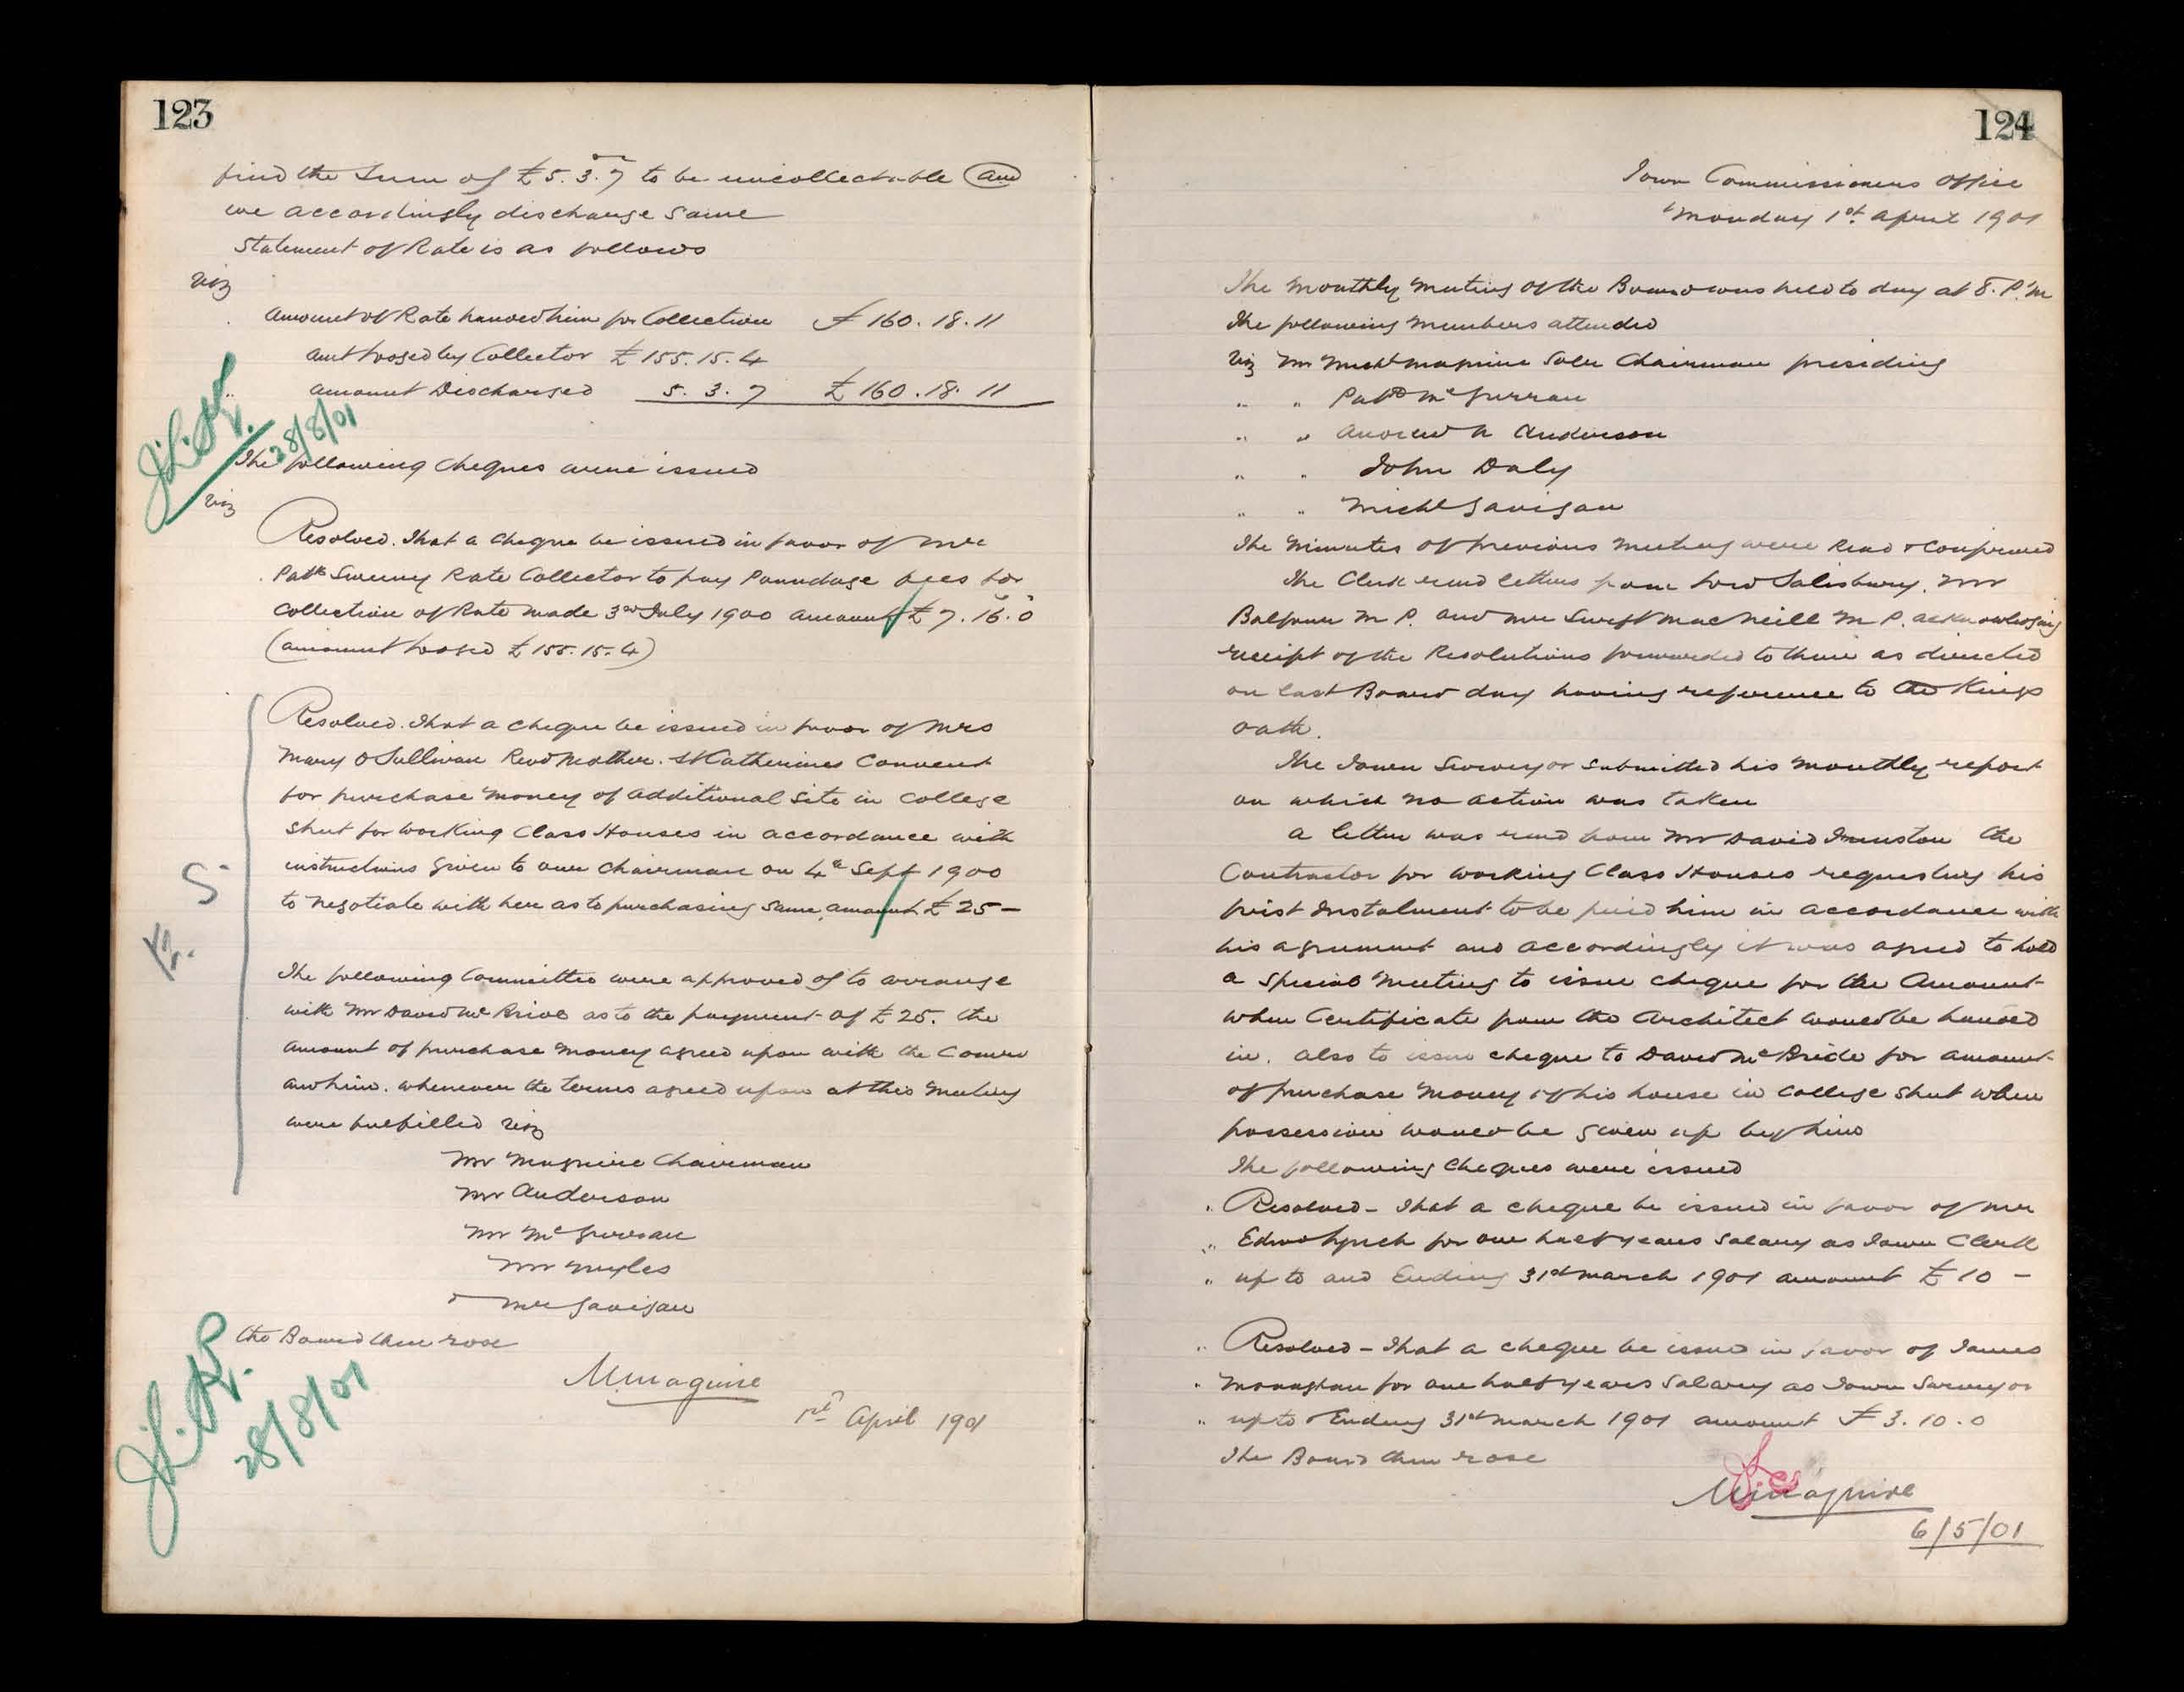 123
find the Sum of £5.3.7 to be uncollectable and
we accordingly discharge same
Statement of Rate is as follows
viz
Amount of Rate handed him for Collection £160.18.11
Amt lodged by Collector £155.15.4
Amount Discharged 5.3.7 £160.18.11
28/8/01
The following Cheques were issued
viz
Resolved. That a Cheque be issued in favor of Mr
Patk Sweeny Rate Collector to pay Poundage fees for
Collection of Rate made 3rd July 1900 amount £7.16.0
(amount lodged £155.15.4)
Resolved. That a Cheque be issued in favor of Mrs
Mary O Sullivan Revd Mother. St Catherines Convent
for purchase money of additional site in College
Street for Working Class Houses in accordance with
instructions given to our Chairman on 4th Sept 1900
to negotiate with her as to purchasing same, amount £25 —
The following Committee were approved of to arrange
with Mr David McBride as to the payment of £25. the
amount of purchase money agreed upon with the Comrs
and him. whenever the terms agreed upon at this Meeting
were fulfilled viz
Mr Maguire Chairman
Mr Anderson
Mr McGurran
Mr Myles
Mr Gavigan
the Board then rose
M Maguire
1st April 1901
28/8/01
124
Town Commissioners Office
Monday 1st April 1901
The Monthly Meeting of the Board was held to day at 8. P.M
The following Members attended
viz Mr Michl Maguire Solr Chairman presiding
" " Patk McGurran
" " Andrew A Anderson
" " John Daly
" " Michl Gavigan
The Minutes of previous Meeting were Read & Confirmed
The Clerk read letters from Lord Salisbury. Mr
Balfour M P. and Mr Swift MacNeill M P. acknowledging
receipt of the Resolutions forwarded to them as directed
on last Board day having reference to the Kings
oath.
The Town Surveyor submitted his Monthly report
on which no action was taken
A letter was read from Mr David the
Contractor for Working Class Houses requesting his
first Instalment to be paid him in accordance with
his agreement and accordingly it was agreed to hold
a Special Meeting to issue cheque for the Amount
when Certificate from the Architect would be handed
in. also to issue cheque to David McBride for amount
of purchase Money of his house in College Street when
possession would be given up by him
The following Cheques were issued
" Resolved — That a cheque be issued in favor of Mr
" Edwd Lynch for one half years Salary as Town Clerk
" up to and Ending 31st March 1901 amount £10 —
" Resolved — That a cheque be issued in favor of James
" Monaghan for one half years Salary as Town Surveyor
" up to & Ending 31st March 1901 amount £3.10.0
The Board then rose
M Maguire
6/5/01